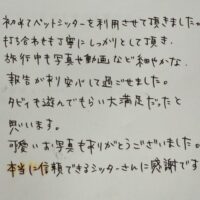 初めてペットシッターを利用させて頂きました。
打ち合わせも丁寧にしっかりとして頂き、
旅行中も写真や動画など細やかな
報告が有り安心して過ごせました。
タビィも遊んでもらい大満足だったと
思います。
可愛いお写真もありがとうございました。
本当に信頼できるシッターさんに感謝です